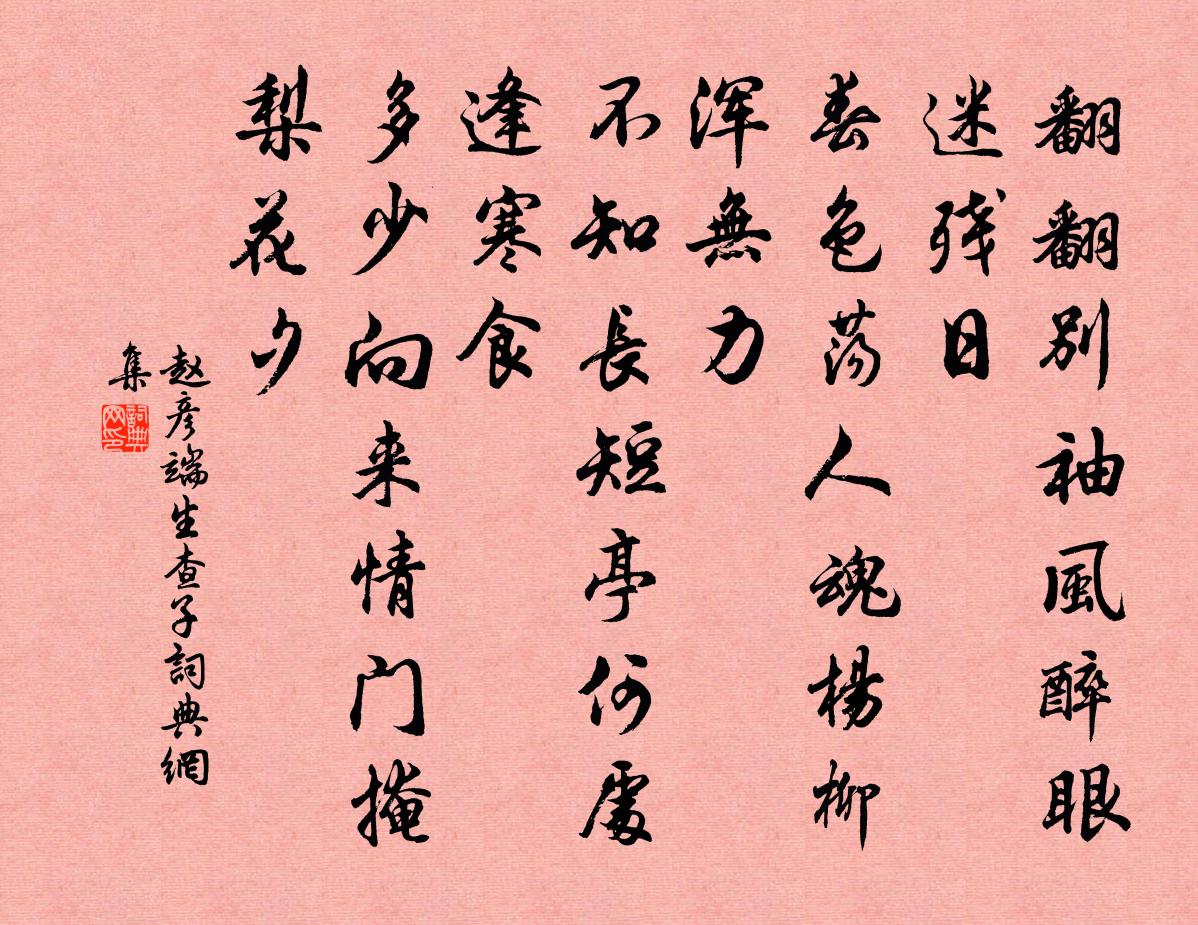 翻翻别袖風醉眼
迷残日
春色荡人魂楊柳
浑無力
不知長短亭何處
逢寒食
多少向来情门掩
梨花夕
赵彦端生查子詞典網
集
詞典
网印